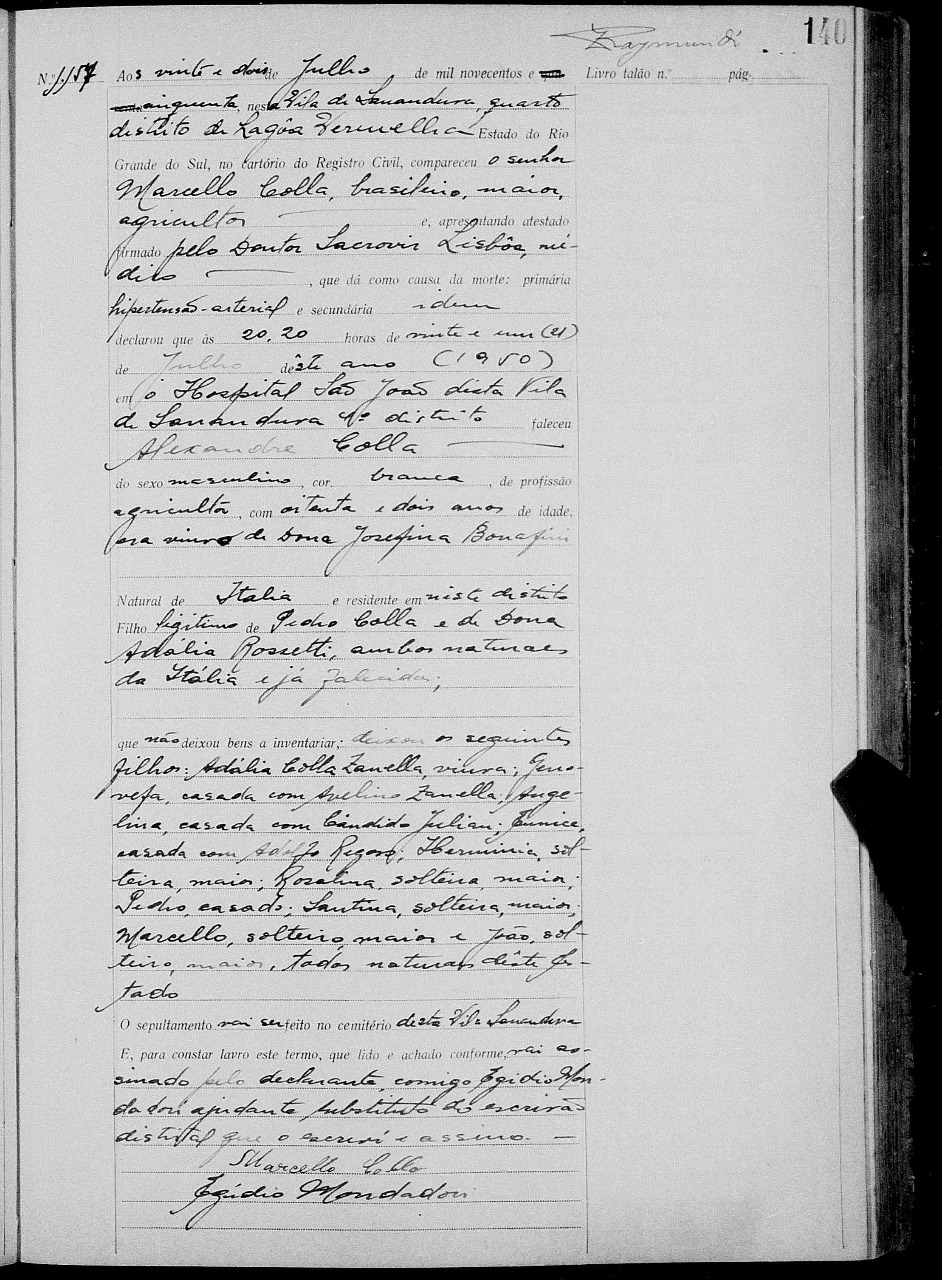 140
Raymundi
Nº 1.157 Aos vinte e dois de Julho de mil novecentos e qua
renta cinquenta, nesta Vila de Sananduva, quarto
distrito de Lagôa Vermelha Estado do Rio
Grande do Sul, no cartório do Registro Civil, compareceu o senhor
Marcello Colla, brasileiro, maior,
agricultor e, apresentando atestado
firmado pelo Doutor Sacrovir Lisbôa, mé-
dico , que dá como causa da morte: primária
hipertensão-arterial e secundária idem
declarou que às 20,20 horas de vinte e um (21)
de Julho dêste ano (1950)
em o Hospital São João desta Vila
de Sananduva 4º distrito faleceu
Alexandre Colla
do sexo masculino, cor branca, de profissão
agricultor, com oitenta e dois anos de idade,
era viuvo de Dona Josefina Bonafin
Natural de Italia e residente em neste distrito
Filho legitimo de Pedro Colla e de Dona
Adália Rossetti, ambos naturaes
da Itália e já falecidos;
que não deixou bens a inventariar,; deixou os seguintes
filhos: Adália Colla Zanella, viuva; Geno-
vefa, casada com Avelino Zanella; Ange-
lina, casada com Cândido Julian; Eunice,
casada com Adolfo Rigoso; Herminia, sol-
teira, maior; Rosalina, solteira, maior;
Pedro, casado; Santina, solteira, maior;
Marcello, solteiro, maior e João, sol-
teiro, maior, todos naturaes dêste Es-
tado
O sepultamento vai ser feito no cemitério desta Vila Sananduva
E, para constar lavro este termo, que lido e achado conforme, vai as-
sinado pelo declarante, comigo Egidio Mon-
dadori ajudante, substituto do escrivão
distrital que o escreví e assino. —
Marcello Colla
Egidio Mondadori
Livro talão n.º pág.